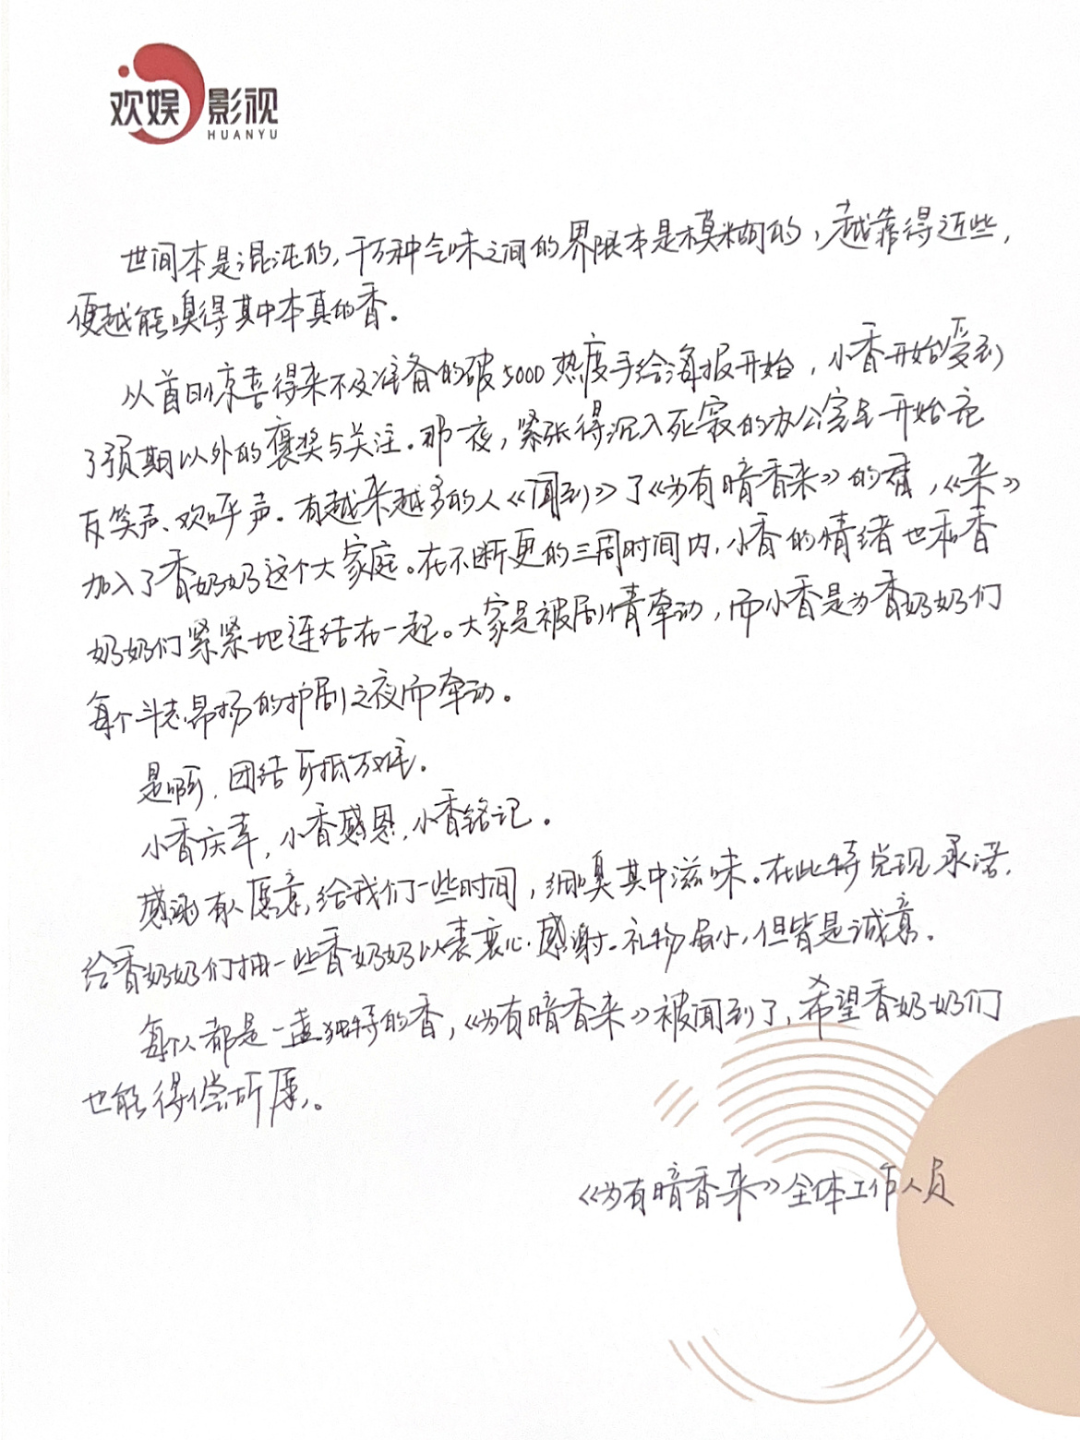 欢娱影视
HUANYU
世间本是混沌的，千万种气味之间的界限本是模糊的，越靠得近些，
便越能嗅得其中本真的香。
从首日惊喜得来不及准备的破5000热度手绘海报开始，小香开始受到
了预期以外的褒奖与关注。那一夜，紧张得沉入死寂的办公室里开始充
斥笑声、欢呼声。有越来越多的人《闻到》了《为有暗香来》的香，《来》
加入了香奶奶这个大家庭。在不断更的三周时间内，小香的情绪也和香
奶奶们紧紧地连结在一起。大家是被剧情牵动，而小香是为香奶奶们
每个斗志昂扬的护剧之夜而牵动。
是啊，团结可抵万难。
小香庆幸，小香感恩，小香铭记。
感谢有人愿意，给我们一些时间，细嗅其中滋味。在此特兑现承诺，
给香奶奶们抽一些香奶奶以表衷心感谢。礼物虽小，但皆是诚意。
每个人都是一盏独特的香，《为有暗香来》被闻到了，希望香奶奶们
也能得偿所愿。
《为有暗香来》全体工作人员